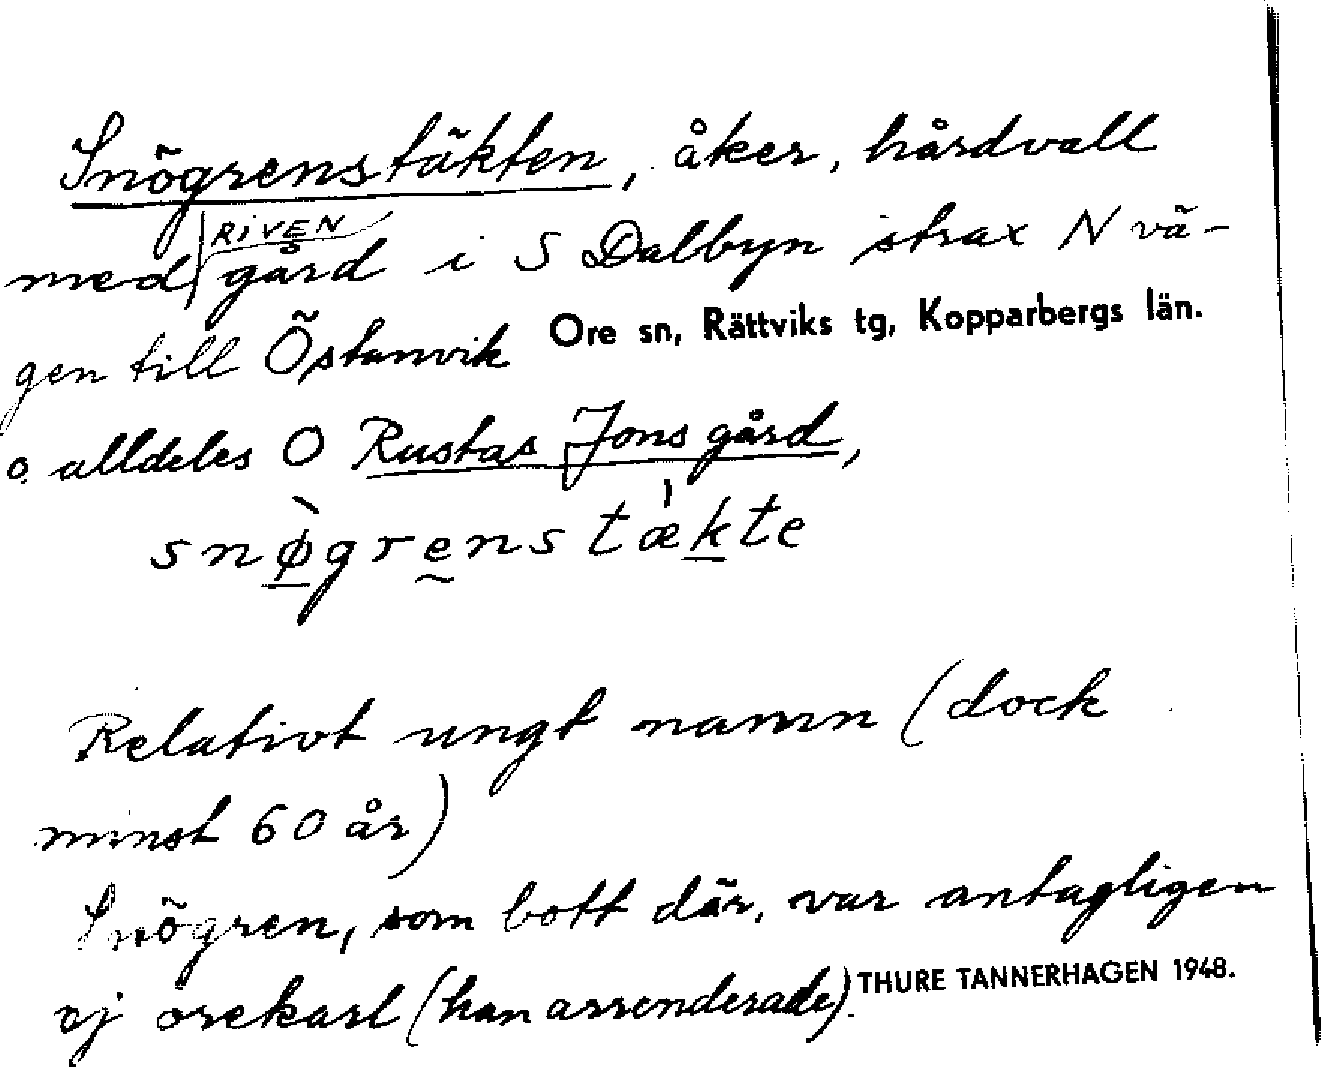 Snögrenstäkten, åker, hårdvall
med RIVEN gård i S Dalbyn strax N vä-
gen till Östanvik Ore sn, Rättviks tg, Kopparbergs län.
o. alldeles O Rustas Jons gård,
snø̀grenstækte
Relativt ungt namn (dock
minst 60 år)
Snögren, som bott där, var antagligen
ej orekarl (han arrenderade). THURE TANNERHAGEN 1948.